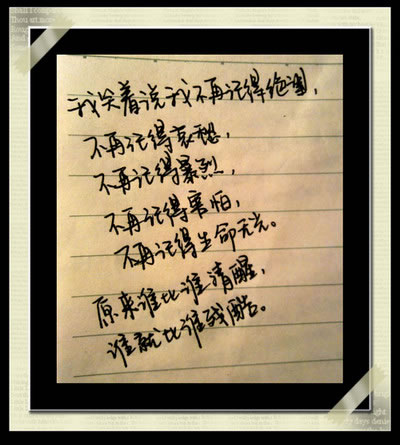 我笑着说我不再记得绝望，
不再记得哀愁，
不再记得暴烈，
不再记得害怕，
不再记得生命无光。
原来谁比谁清醒，
谁就比谁残酷。